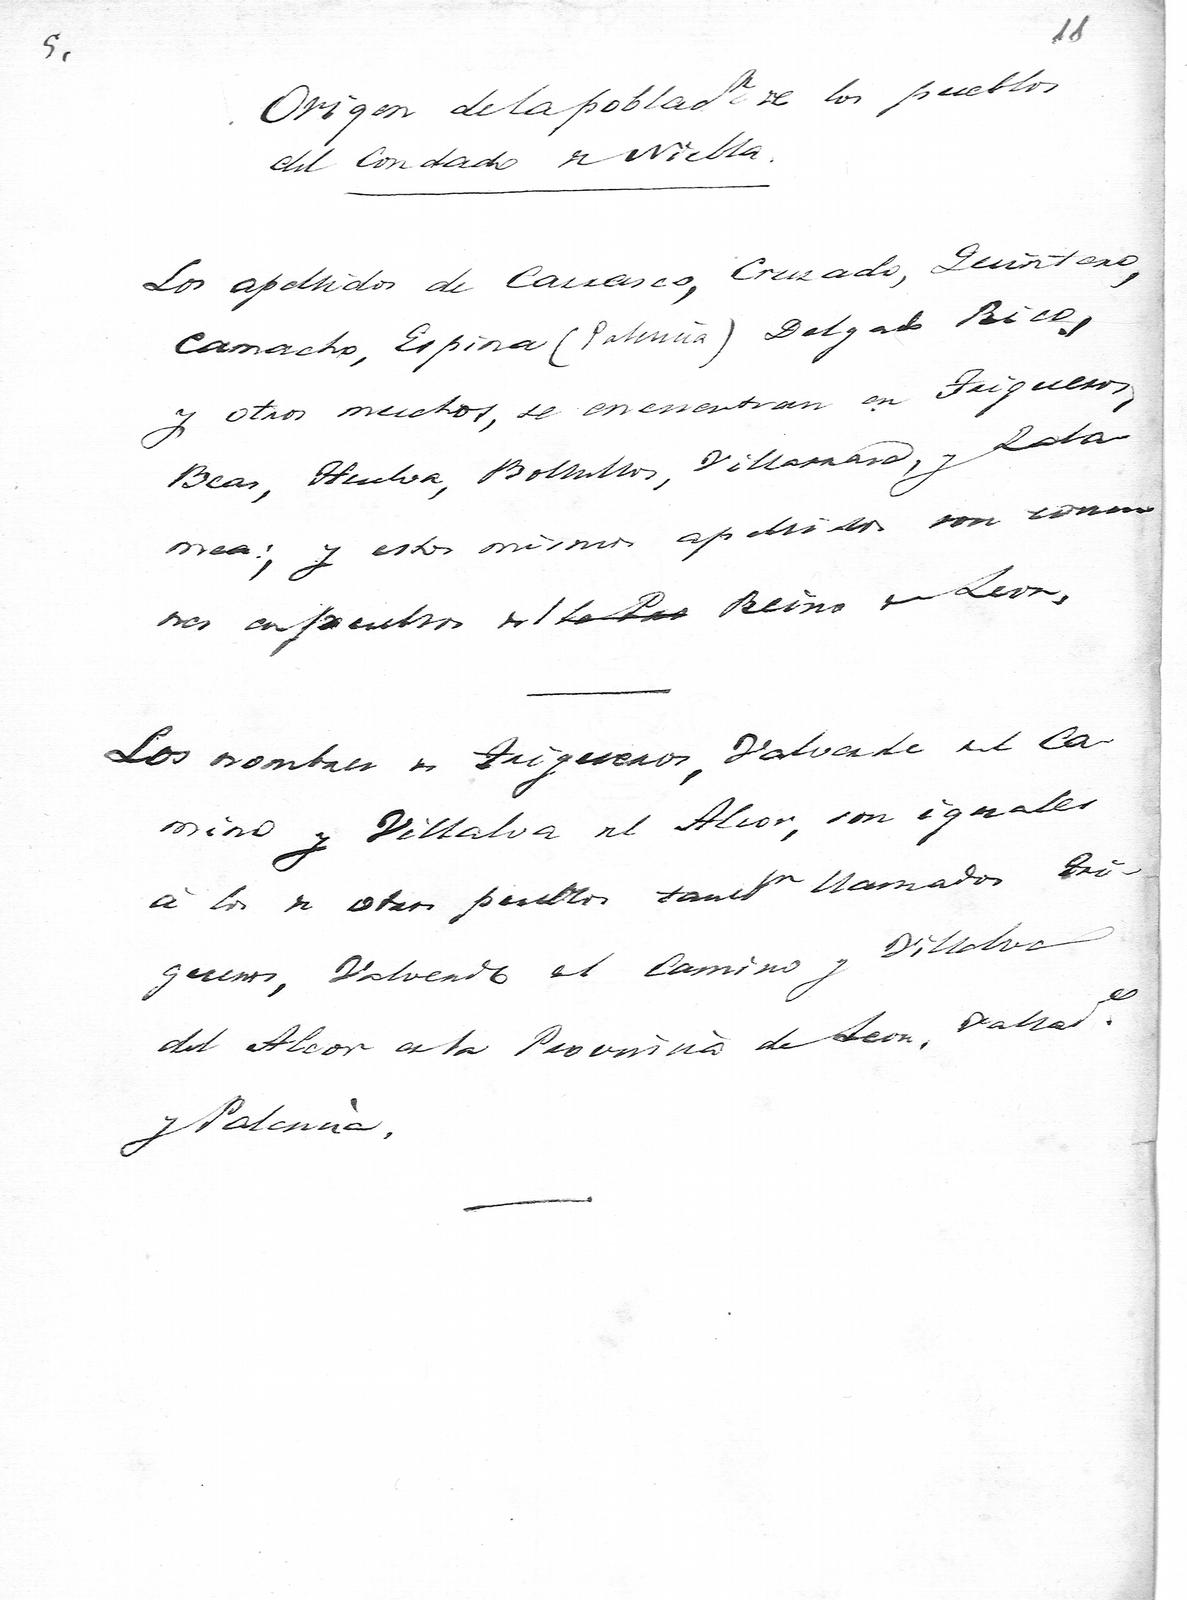 5. 11
Origen de la poblad.n de los pueblos
del Condado de Niebla.
Los apellidos de Carrasco, Cruzado, Quintero,
Camacho, Espina (Palencia) Delgado Rico,
y otros muchos, se encuentran en Trigueros,
Beas, Huelva, Bollullos, Villarrasa, y Zala-
mea; y estos mismos apellidos son comu
nes en pueblos del Reino de Leon,
Los nombres de Trigueros, Valverde del Ca-
mino y Villalva del Alcor, son iguales
á los de otros pueblos tamb.n llamados Tri-
gueros, Valverde del Camino y Villalva
del Alcor en la Provincia de Leon, Vallad.
y Palencia.